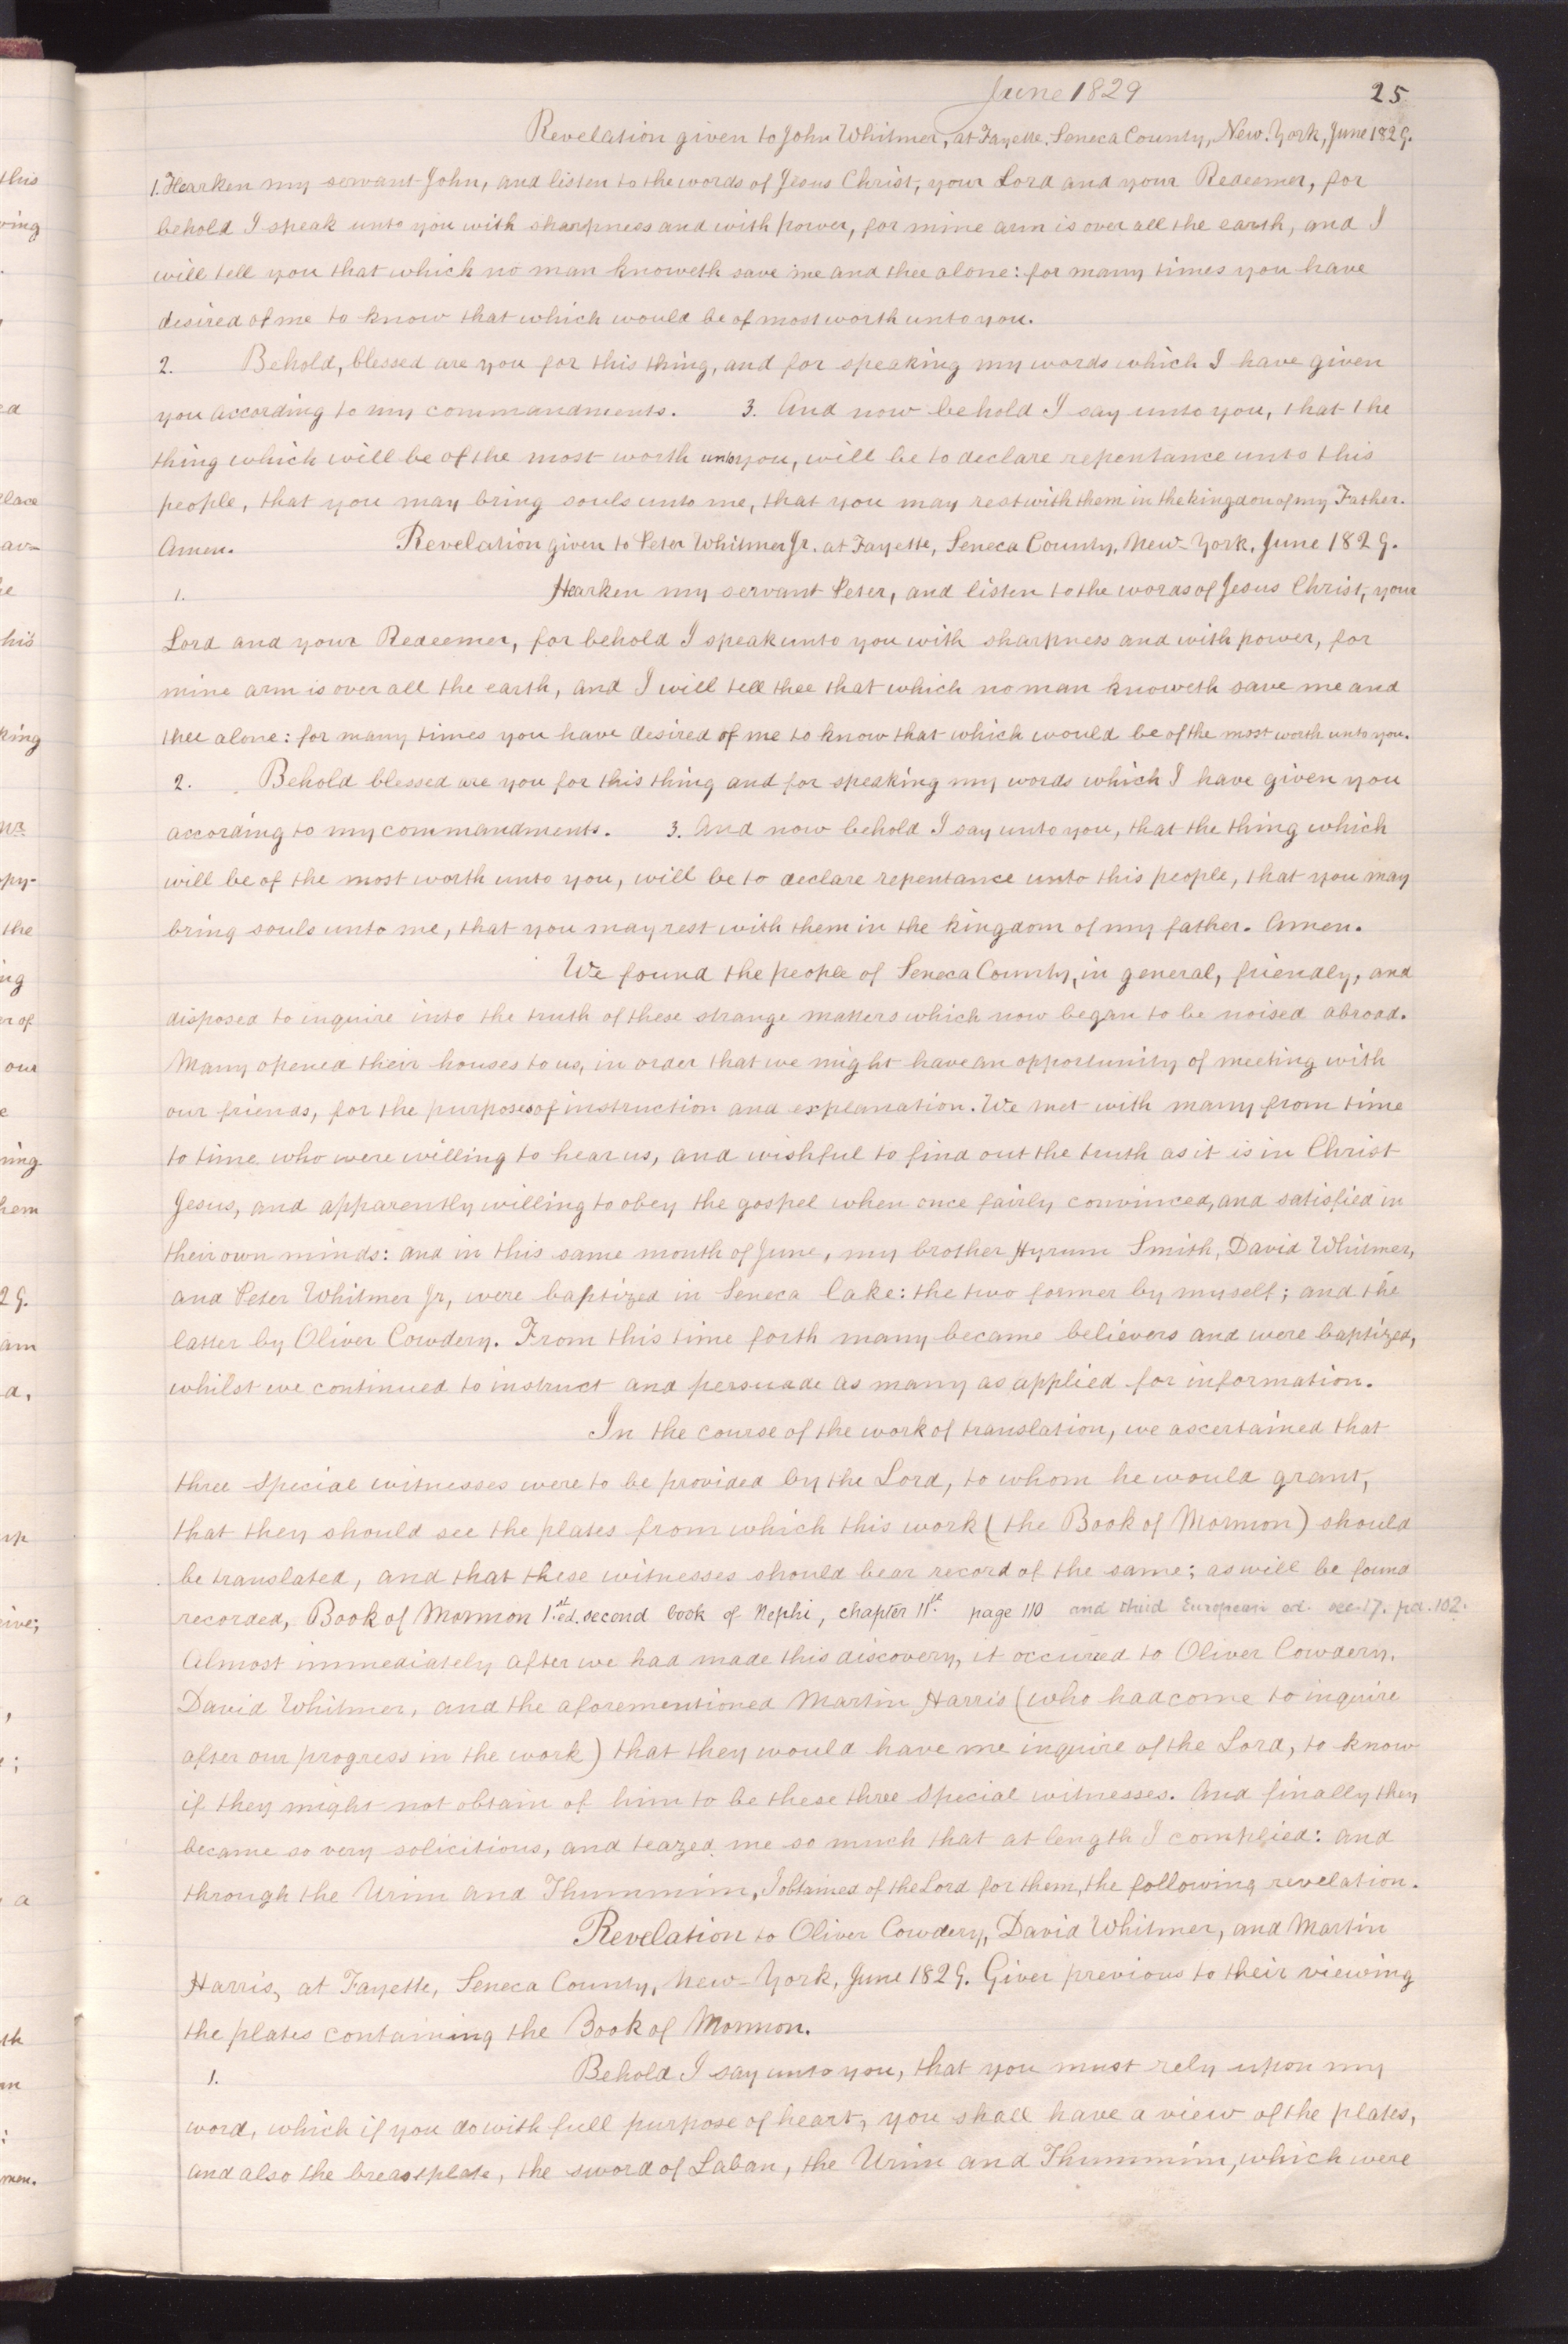 June 1829
25
Revelation given to John Whitmer, at Fayette, Seneca County, New. York, June 1829.
1. Hearken my servant John, and listen to the words of Jesus Christ, your Lord and your Redeemer, for
behold I speak unto you with sharpness and with power, for mine arm is over all the earth, and I
will tell you that which no man knoweth save me and thee alone: for many times you have
desired of me to know that which would be of most worth unto you.
2. Behold, blessed are you for this thing, and for speaking my words which I have given
you according to my commandments. 3. And now behold I say unto you, that the
thing which will be of the most worth unto you, will be to declare repentance unto this
people, that you may bring souls unto me, that you may rest with them in the kingdom of my Father.
Amen. Revelation given to Peter Whitmer Jr. at Fayette, Seneca County, New-York, June 1829.
1. Hearken my servant Peter, and listen to the words of Jesus Christ, your
Lord and your Redeemer, for behold I speak unto you with sharpness and with power, for
mine arm is over all the earth, and I will tell thee that which no man knoweth save me and
thee alone: for many times you have desired of me to know that which would be of the most worth unto you.
2. Behold blessed are you for this thing and for speaking my words which I have given you
according to my commandments. 3. And now behold I say unto you, that the thing which
will be of the most worth unto you, will be to declare repentance unto this people, that you may
bring souls unto me, that you may rest with them in the kingdom of my father. Amen.
We found the people of Seneca County, in general, friendly, and
disposed to inquire into the truth of these strange matters which now began to be noised abroad.
Many opened their houses to us, in order that we might have an opportunity of meeting with
our friends, for the purposes of instruction and explanation. We met with many from time
to time who were willing to hear us, and wishful to find out the truth as it is in Christ
Jesus, and apparently willing to obey the gospel when once fairly convinced, and satisfied in
their own minds: and in this same month of June, my brother Hyrum Smith, David Whitmer,
and Peter Whitmer Jr, were baptized in Seneca lake: the two former by myself; and the
latter by Oliver Cowdery. From this time forth many became believers and were baptized,
whilst we continued to instruct and persuade as many as applied for information.
In the course of the work of translation, we ascertained that
three special witnesses were to be provided by the Lord, to whom he would grant,
that they should see the plates from which this work (the Book of Mormon) should
be translated, and that these witnesses should bear record of the same; as will be found
recorded, Book of Mormon 1st. ed. second book of Nephi, chapter 11st. page 110 and third European ed. sec. 17. pa. 102.
Almost immediately after we had made this discovery, it occured to Oliver Cowdery,
David Whitmer, and the aforementioned Martin Harris (who had come to inquire
after our progress in the work) that they would have me inquire of the Lord, to know
if they might not obtain of him to be these three special witnesses. And finally they
became so very solicitious, and teazed me so much that at length I complied: and
through the Urim and Thummim, I obtained of the Lord for them, the following revelation.
Revelation to Oliver Cowdery, David Whitmer, and Martin
Harris, at Fayette, Seneca County, New-York, June 1829. Given previous to their viewing
the plates containing the Book of Mormon.
1. Behold I say unto you, that you must rely upon my
word, which if you do with full purpose of heart, you shall have a view of the plates,
and also the breastplate, the sword of Laban, the Urim and Thummim, which were